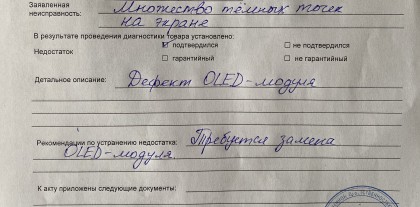 Заявленная неисправность: Множество тёмных точек
на экране
В результате проведения диагностики товара установлено:
Недостаток
подтвердился не подтвердился
гарантийный не гарантийный
Детальное описание: Дефект OLED-модуля
Рекомендации по устранению недостатка: Требуется замена
OLED-модуля.
К акту приложены следующие документы: